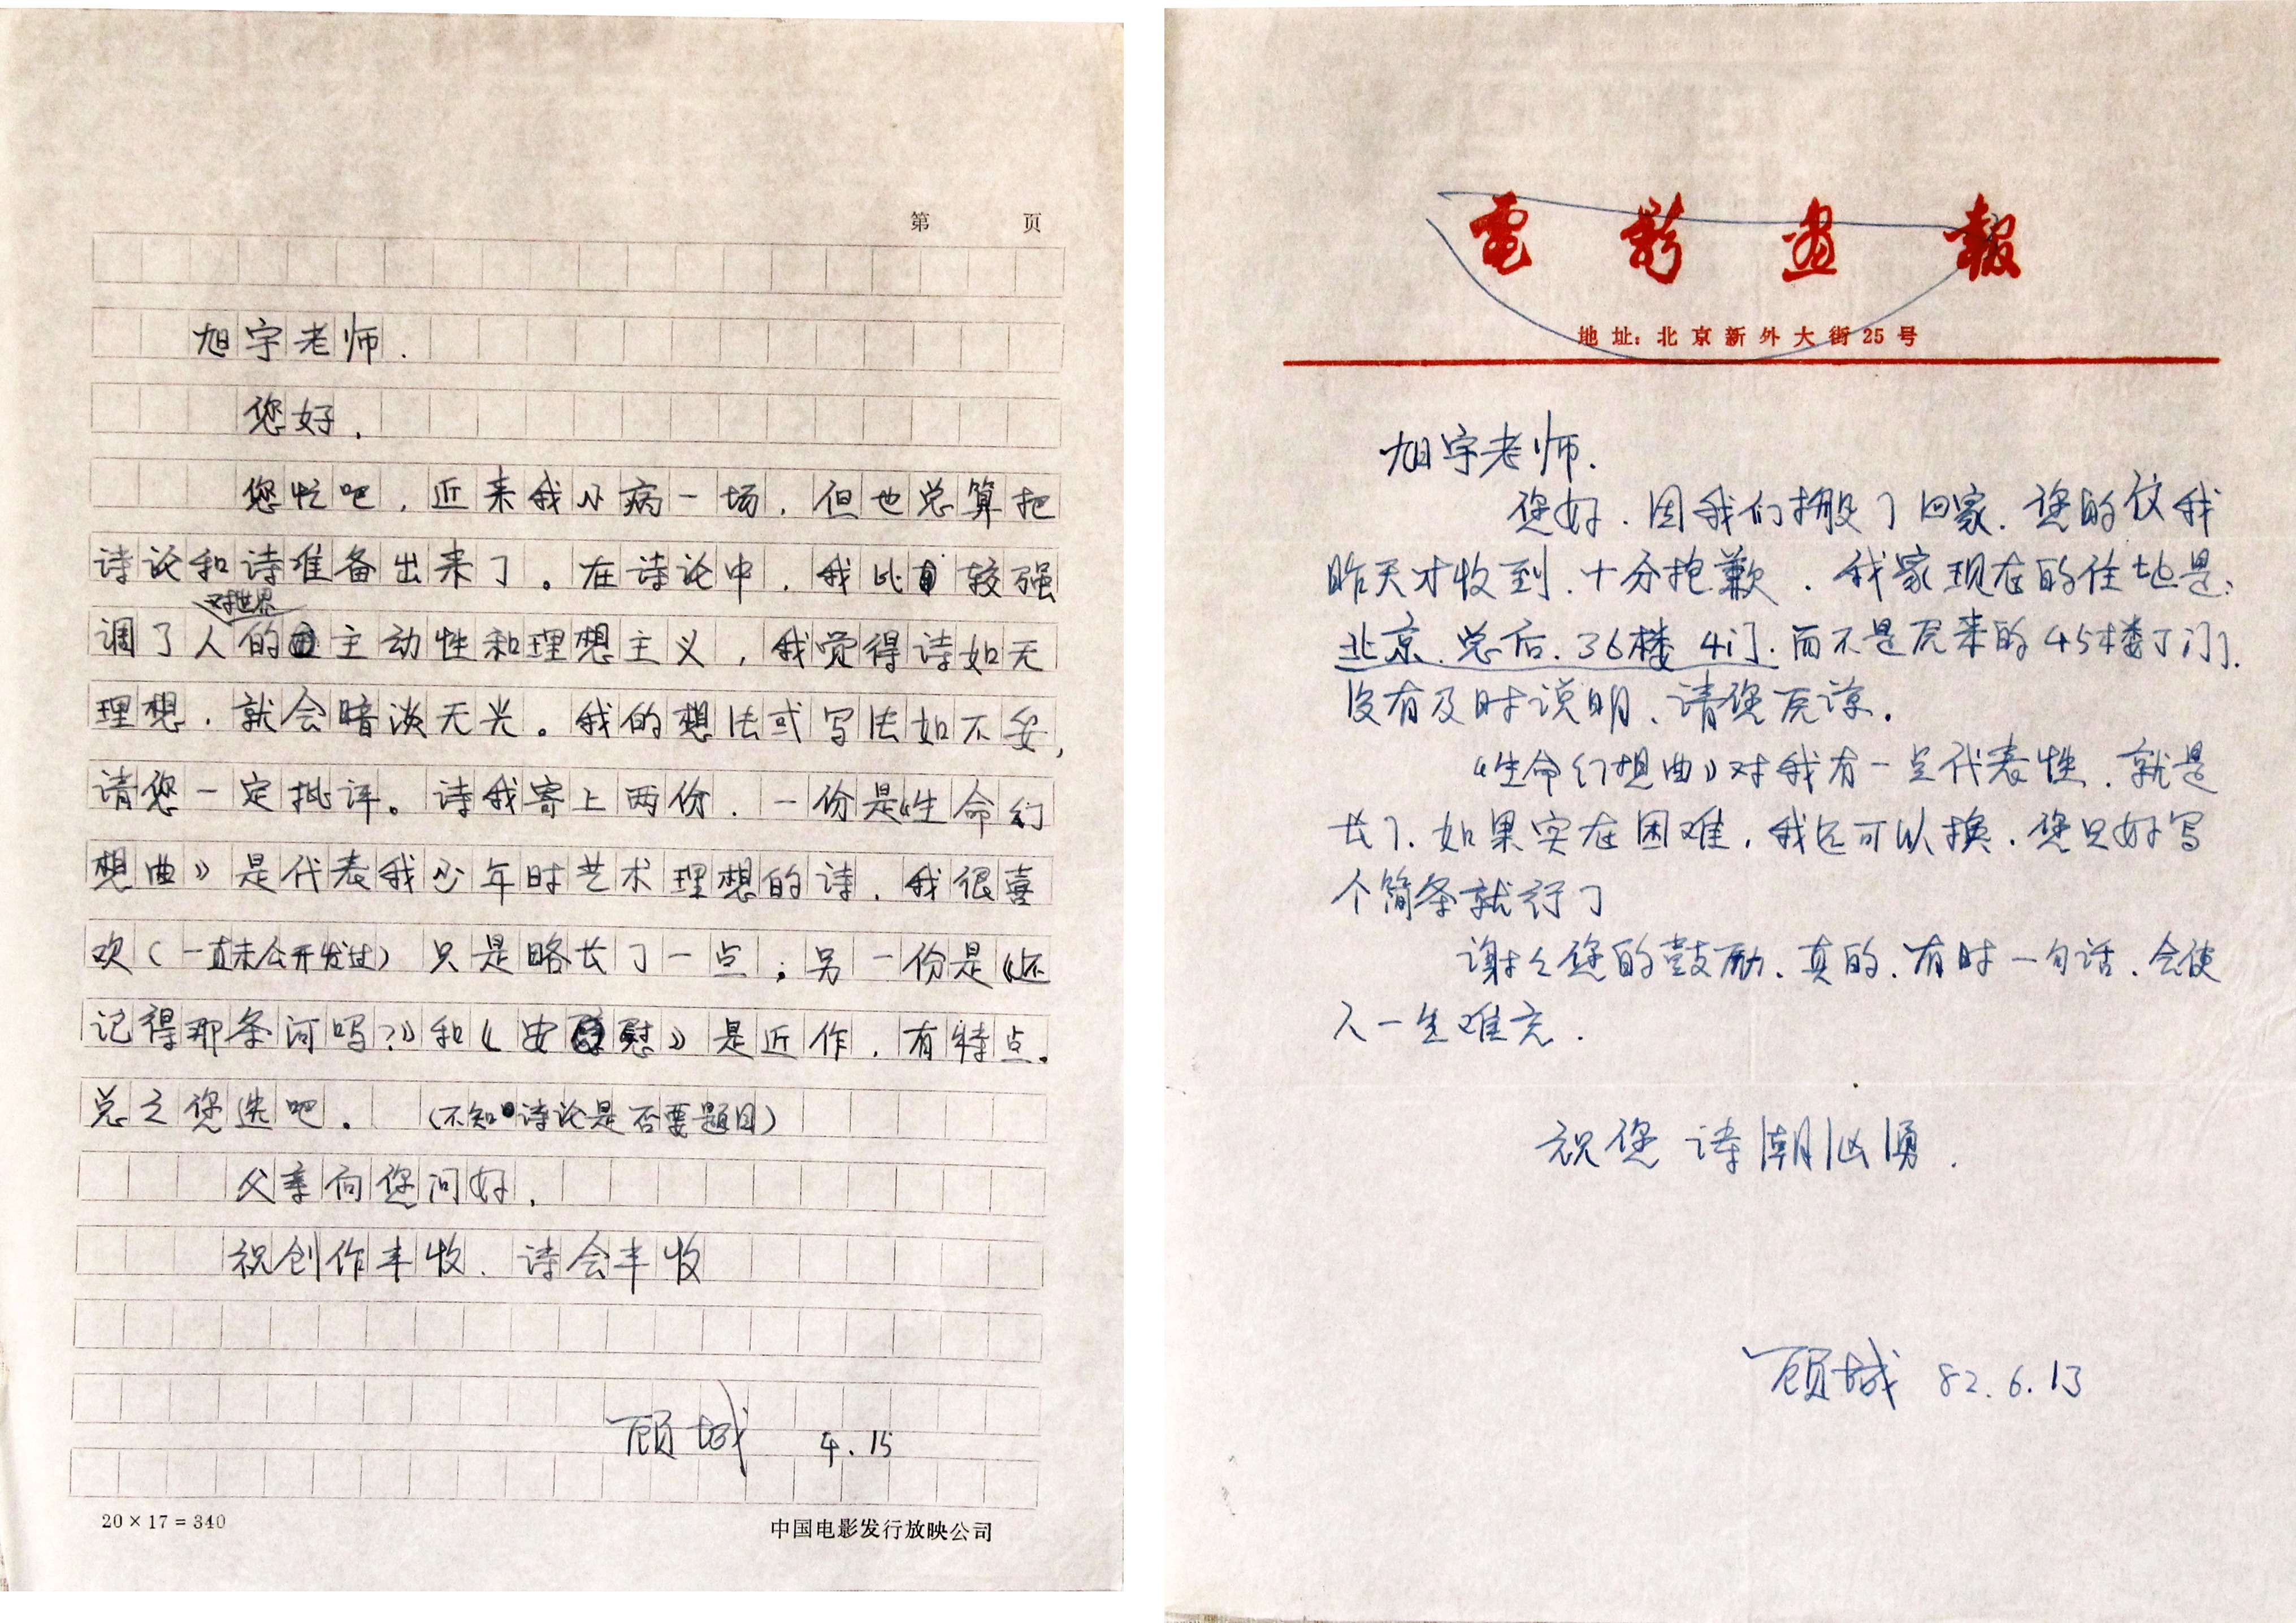 第 页
旭宇老师.
您好.
您忙吧,近来我小病一场.但也总算把
诗论和诗准备出来了。在诗论中.我比较强
对世界
调了人的主动性和理想主义,我觉得诗如无
理想.就会暗淡无光。我的想法或写法如不妥,
请您一定批评。诗我寄上两份.一份是《生命幻
想曲》是代表我少年时艺术理想的诗.我很喜
欢(一直未公开发过)只是略长了一点;另一份是《还
记得那条河吗?》和《安慰》是近作.有特点.
总之您选吧. (不知诗论是否要题目)
父亲向您问好.
祝创作丰收.诗会丰收
顾城 4.15
20×17=340 中国电影发行放映公司
電影畫報
地址:北京新外大街25号
旭宇老师.
您好.因我们搬了回家.您的信我
昨天才收到.十分抱歉.我家现在的住地是:
北京.总后.36楼4门.而不是原来的45楼丁门.
没有及时说明、请您原谅.
《生命幻想曲》对我有一点代表性.就是
长了.如果实在困难,我还可以换.您只好写
个简条就行了
谢々您的鼓励、真的.有时一句话.会使
人一生难忘.
祝您 诗潮汹湧.
顾城 82.6.13